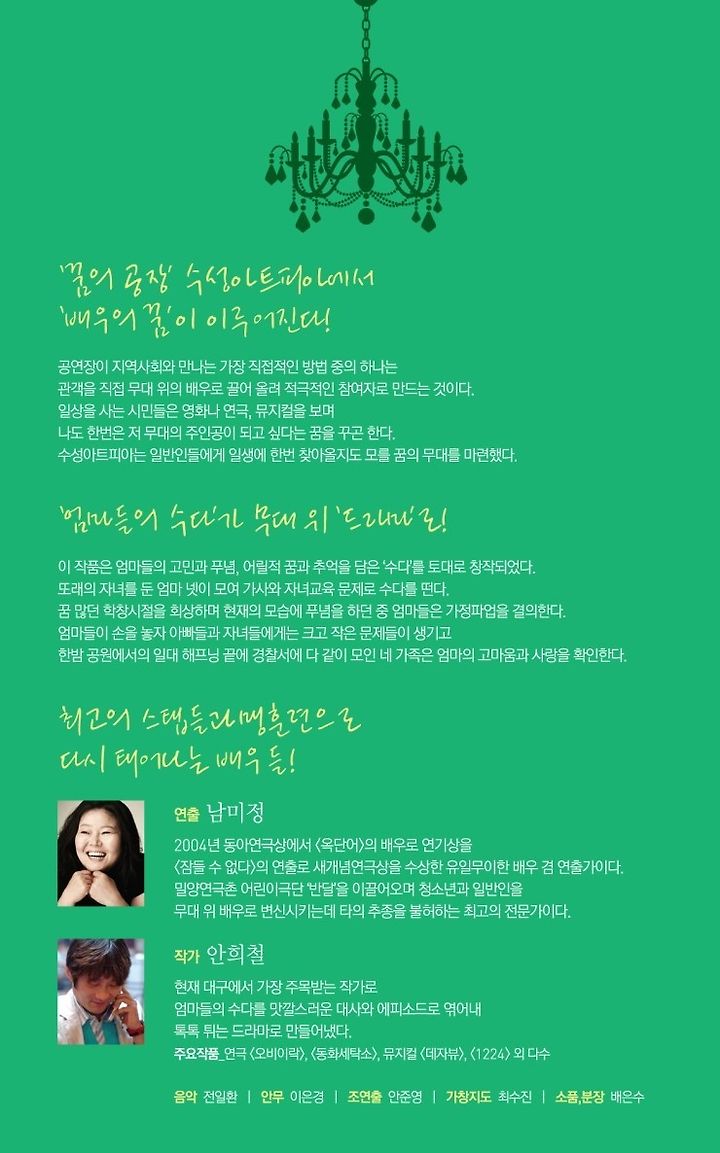 '꿈의 공장' 수성아트피아에서
'배우의 꿈'이 이루어진다!
공연장이 지역사회와 만나는 가장 직접적인 방법 중의 하나는
관객을 직접 무대 위의 배우로 끌어 올려 적극적인 참여자로 만드는 것이다.
일상을 사는 시민들은 영화나 연극, 뮤지컬을 보며
나도 한번은 저 무대의 주인공이 되고 싶다는 꿈을 꾸곤 한다.
수성아트피아는 일반인들에게 일생에 한번 찾아올지도 모를 꿈의 무대를 마련했다.
'엄마들의 수다'가 무대 위 '드라마'로!
이 작품은 엄마들의 고민과 푸념, 어릴적 꿈과 추억을 담은 '수다'를 토대로 창작되었다.
또래의 자녀를 둔 엄마 넷이 모여 가사와 자녀교육 문제로 수다를 떤다.
꿈 많던 학창시절을 회상하며 현재의 모습에 푸념을 하던 중 엄마들은 가정파업을 결의한다.
엄마들이 손을 놓자 아빠들과 자녀들에게는 크고 작은 문제들이 생기고
한밤 공원에서의 일대 해프닝 끝에 경찰서에 다 같이 모인 네 가족은 엄마의 고마움과 사랑을 확인한다.
최고의 스탭들과 맹훈련으로
다시 태어나는 배우들!
연출 남미정
2004년 동아연극상에서 <옥단어>의 배우로 연기상을
<잠들 수 없다>의 연출로 새개념연극상을 수상한 유일무이한 배우 겸 연출가이다.
밀양연극촌 어린이극단 '반달'을 이끌어오며 청소년과 일반인을
무대 위 배우로 변신시키는데 타의 추종을 불허하는 최고의 전문가이다.
작가 안희철
현재 대구에서 가장 주목받는 작가로
엄마들의 수다를 맛깔스러운 대사와 에피소드로 엮어내
톡톡 튀는 드라마로 만들어냈다.
주요작품_연극 <오비이락>, <동화세탁소>, 뮤지컬 <데자뷰>, <1224> 외 다수
음악 전일환 | 안무 이은경 | 조연출 안준영 | 가창지도 최수진 | 소품,분장 배은수